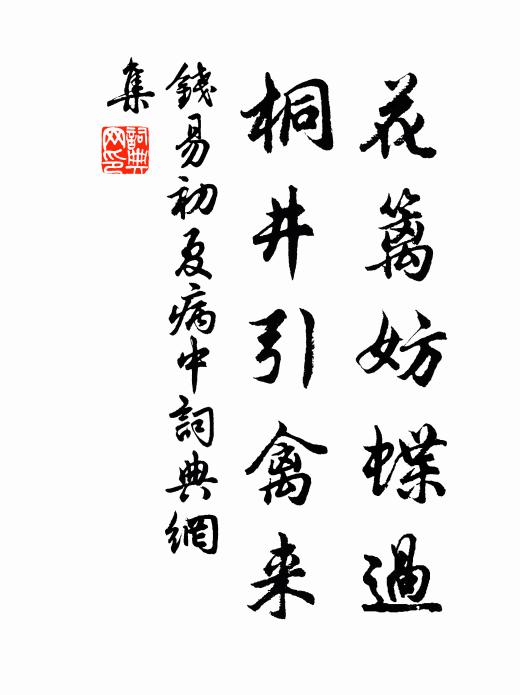 花籬妨蝶過
桐井引禽来
錢易初夏病中詞典網
集
詞典
网印